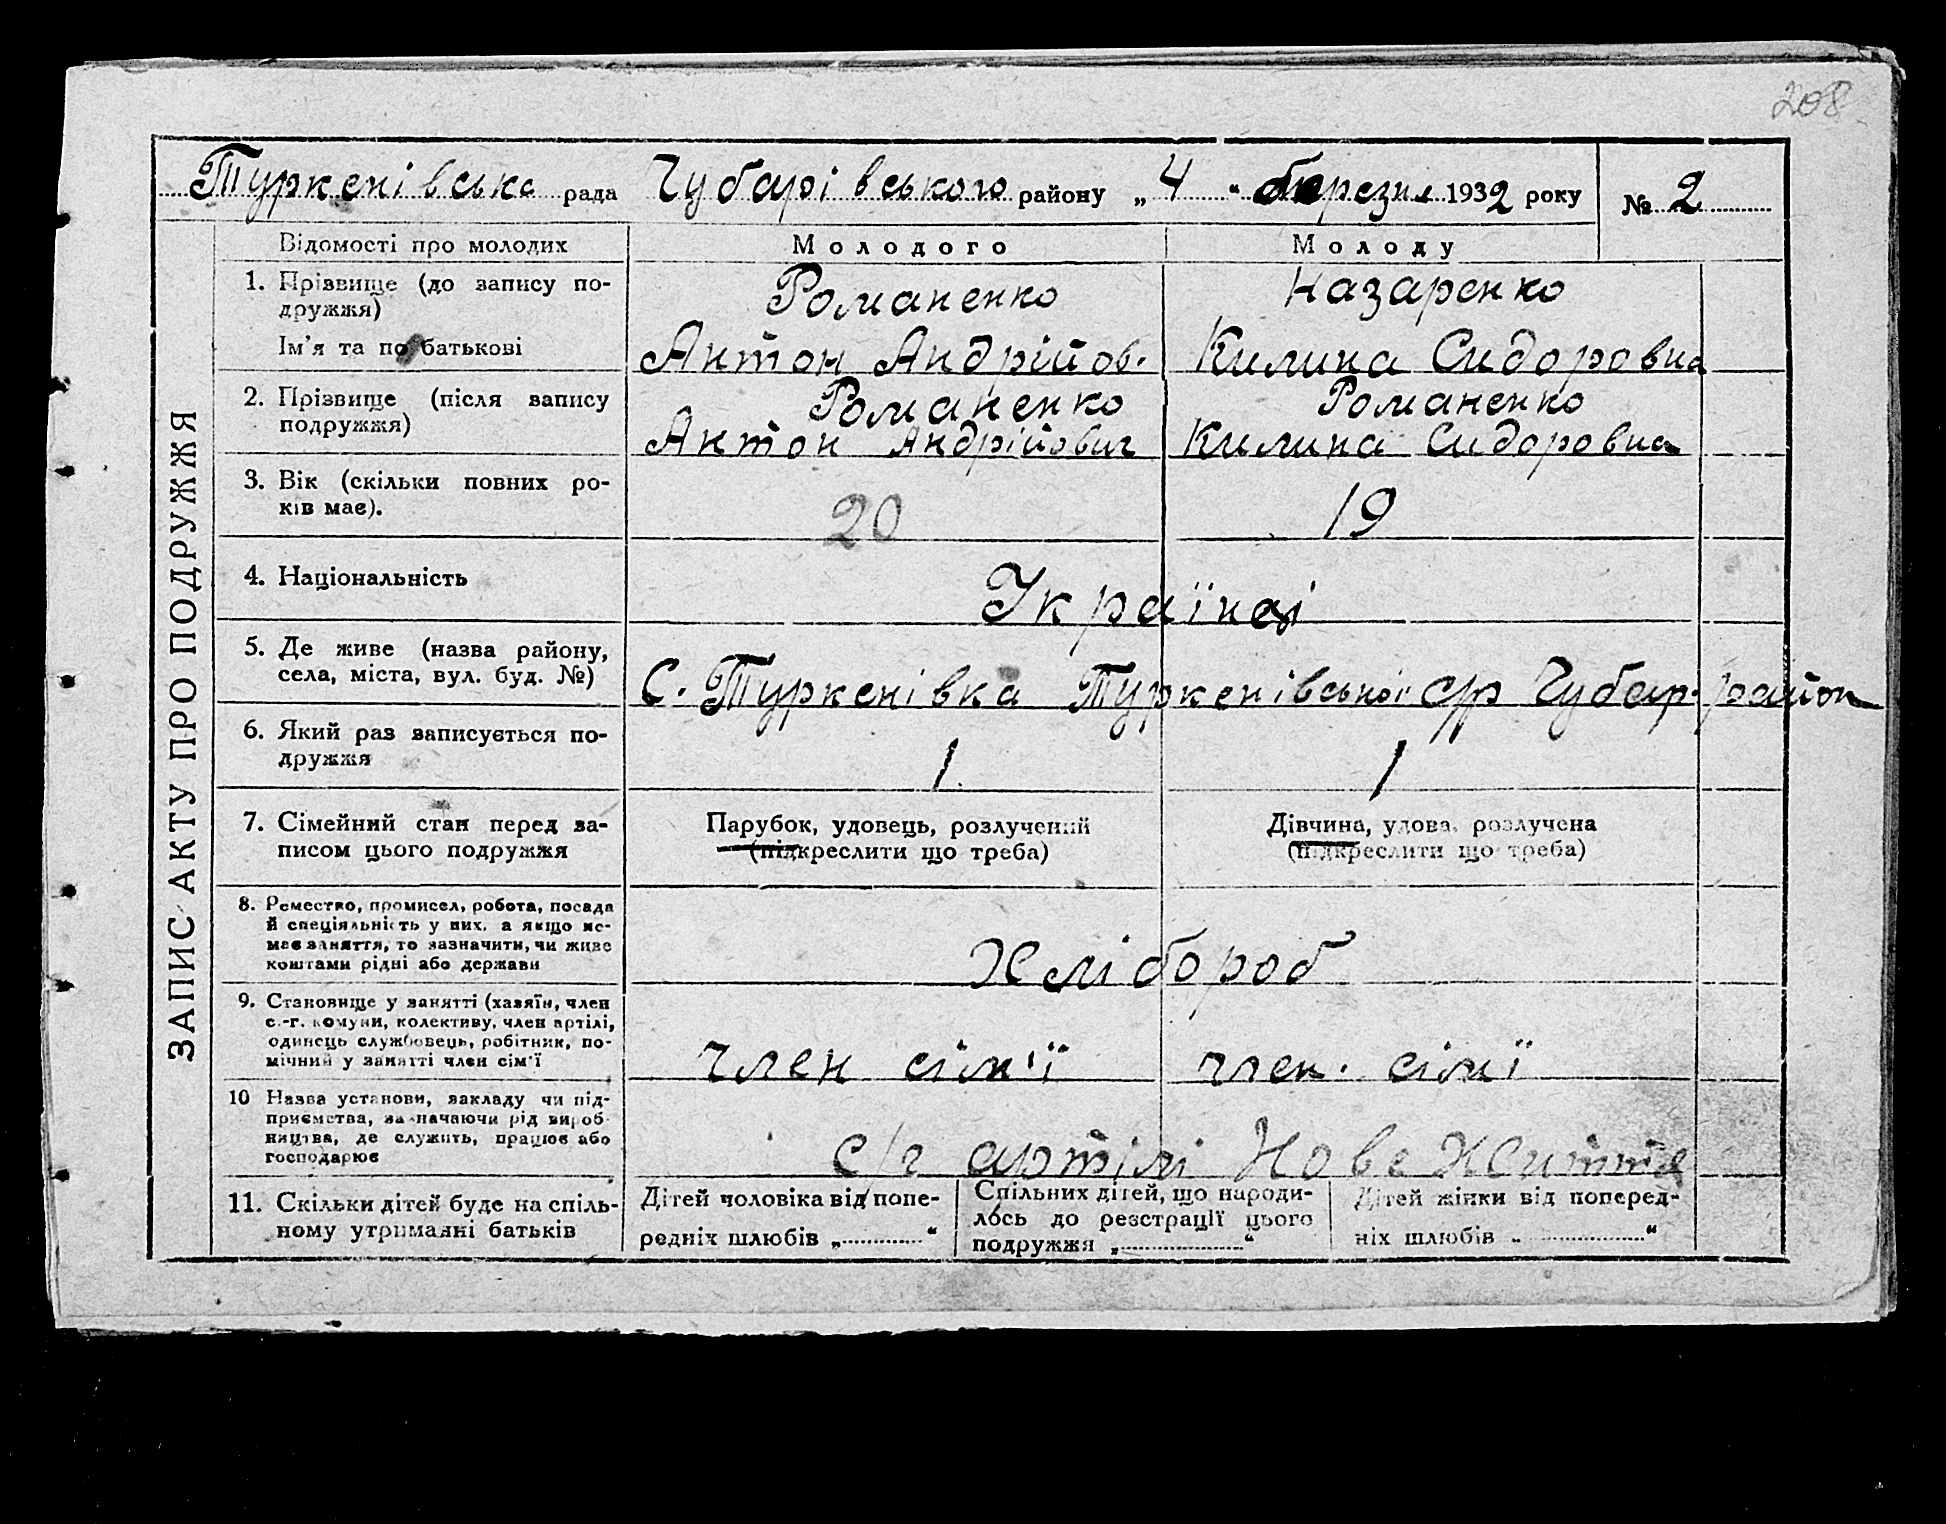 208
Туркенівська рада Чубарівського району „4“ березня 1932 року № 2
ЗАПИС АКТУ ПРО ПОДРУЖЖЯ
Відомості про молодих
Молодого
Молоду
1. Прізвище (до запису по-
дружжя)
Ім'я та по батькові
Романенко
Антон Андрійов.
Назаренко
Килина Сидоровна
2. Прізвище (після запису
подружжя)
Романенко
Антон Андрійович
Романенко
Килина Сидоровна
3. Вік (скільки повних ро-
ків має).
20
19
4. Національність
Українці
5. Де живе (назва району,
села, міста, вул. буд. №)
С. Туркенівка Туркенівської с/р Чубар. район
6. Який раз записується по-
дружжя
1.
1
7. Сімейний стан перед за-
писом цього подружжя
Парубок, удовець, розлучений
(підкреслити що треба)
Дівчина, удова, розлучена
(підкреслити що треба)
8. Ремество, промисел, робота, посада
й спеціяльність у них, а якщо не-
має заняття, то зазначити, чи живе
коштами рідні або держави
Хлібороб
9. Становище у занятті (хазяїн, член
с.-г. комуни, колективу, член артілі,
одинець службовець, робітник, по-
мічний у занятті член сім'ї
член сім'ї
член. сімї
10 Назва установи, закладу чи під-
приємства, зазначаючи рід вироб-
ництва, де служить, працює або
господарює
с/г артілі Нове Життя
11. Скільки дітей буде на спіль-
ному утриманні батьків
Дітей чоловіка від попе-
редніх шлюбів „ “
Спільних дітей, що народи-
лось до реєстрації цього
подружжя „ “
Дітей жінки від поперед-
ніх шлюбів „ “